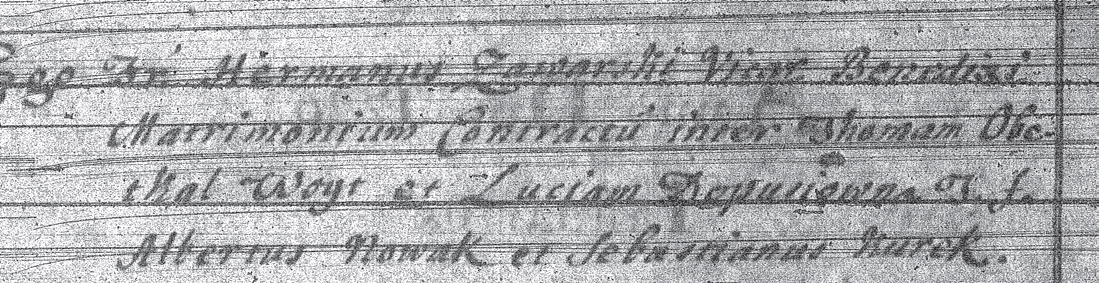 Ego Fr. Hermanus Zawarski Vicar. Benedixi
Matrimonium Contractũ inter Thomam Obe-
thal Woyt et Luciam T. f.
Albertus Nowak et Sebastianus Kurek.